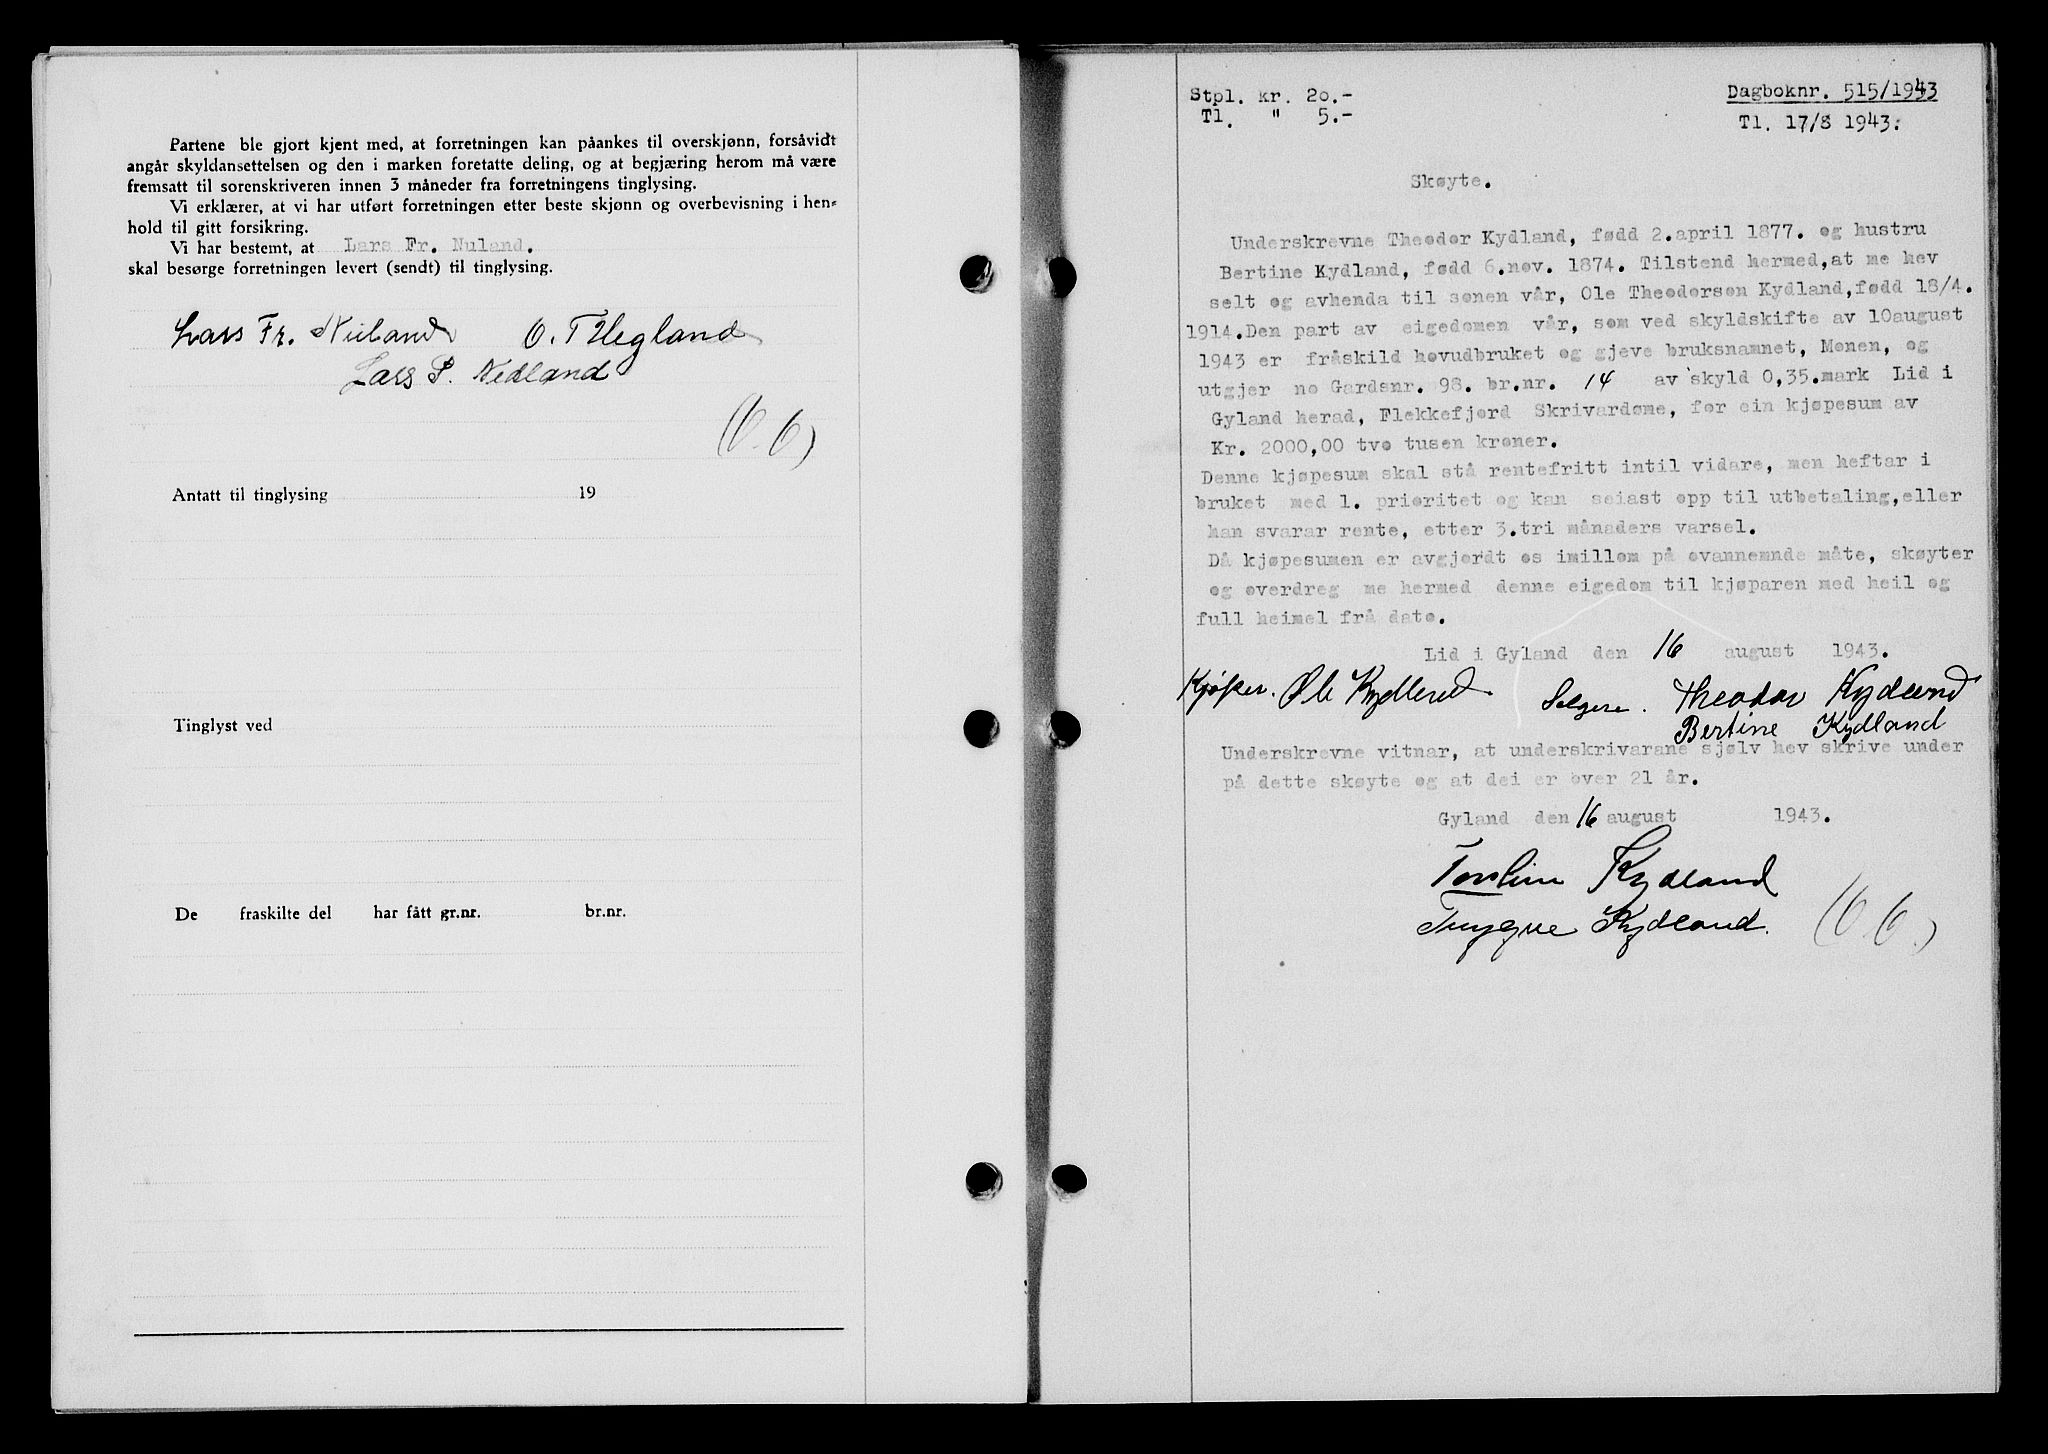 Partene ble gjort kjent med, at forretningen kan påankes til overskjønn, forsåvidt
angår skyldansettelsen og den i marken foretatte deling, og at begjæring herom må være
fremsatt til sorenskriveren innen 3 måneder fra forretningens tinglysing.
Vi erklærer, at vi har utført forretningen etter beste skjønn og overbevisning i hen-
hold til gitt forsikring.
Vi har bestemt, at Lars Fr. Nuland.
skal besørge forretningen levert (sendt) til tinglysing.
Lars Fr. Nuland O. T. Hegland
Lars P. Nedland
Antatt til tinglysing 19
Tinglyst ved
De fraskilte del har fått gr.nr. br.nr.
Stpl. kr. 20.-
Tl. " 5.-
Dagboknr. 515/1943
Tl. 17/8 1943.
Skøyte.
Underskrevne Theodor Kydland, fødd 2.april 1877. og hustru
Bertine Kydland, fødd 6.nov. 1874. Tilstend hermed,at me hev
selt og avhenda til sønen vår, Ole Theodorsøn Kydland,fødd 18/4.
1914.Den part av eigedomen vår, som ved skyldskifte av 10august
1943 er fråskild hovudbruket og gjeve bruksnamnet, Monen, og
utgjer no Gardsnr. 98. br.nr. 14 av skyld 0,35.mark Lid i
Gyland herad, Flekkefjord Skrivardøme, for ein kjøpesum av
Kr. 2000,00 tvo tusen kroner.
Denne kjøpesum skal stå rentefritt intil vidare, men heftar i
bruket med 1. prioritet og kan seiast opp til utbetaling,eller
han svarar rente, etter 3.tri månaders varsel.
Då kjøpesumen er avgjordt os imillom på ovannemnde måte, skøyter
og overdreg me hermed denne eigedom til kjøparen med heil og
full heimel frå dato.
Lid i Gyland den 16 august 1943.
Kjøper. Ole Kydland Selgere. Theodor Kydland
Bertine Kydland
Underskrevne vitnar, at underskrivarane sjølv hev skrive under
på dette skøyte og at dei er over 21 år.
Gyland den 16 august 1943.
Kydland
Trygve Kydland.